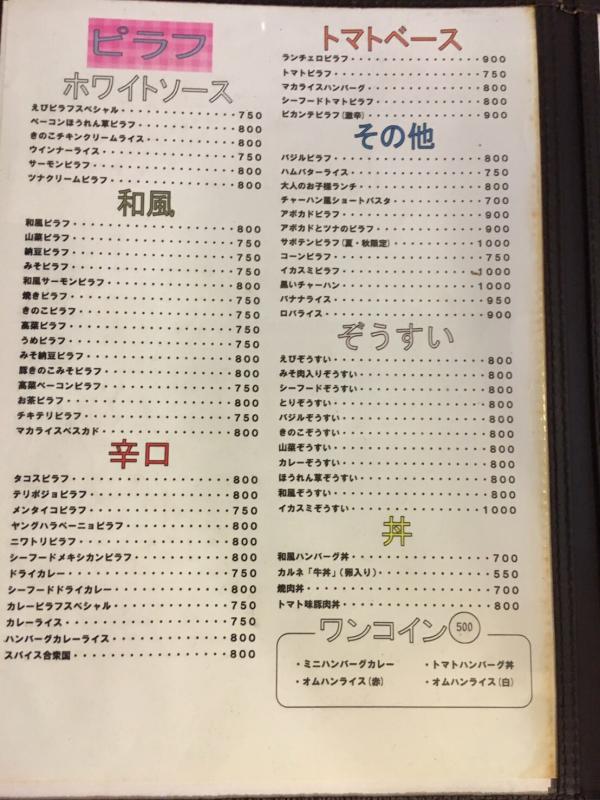 ピラフ
ホワイトソース
えびピラフスペシャル・・・・・・・・・・・750
ベーコンほうれん草ピラフ・・・・・・・・・800
きのこチキンクリームライス・・・・・・・・800
ウインナーライス・・・・・・・・・・・・・750
サーモンピラフ・・・・・・・・・・・・・・800
ツナクリームピラフ・・・・・・・・・・・・800
和風
和風ピラフ・・・・・・・・・・・・・・・・800
山菜ピラフ・・・・・・・・・・・・・・・・750
納豆ピラフ・・・・・・・・・・・・・・・・750
みそピラフ・・・・・・・・・・・・・・・・750
和風サーモンピラフ・・・・・・・・・・・・800
焼きピラフ・・・・・・・・・・・・・・・・750
きのこピラフ・・・・・・・・・・・・・・・750
高菜ピラフ・・・・・・・・・・・・・・・・750
うめピラフ・・・・・・・・・・・・・・・・750
みそ納豆ピラフ・・・・・・・・・・・・・・800
豚きのこみそピラフ・・・・・・・・・・・・800
高菜ベーコンピラフ・・・・・・・・・・・・750
お茶ピラフ・・・・・・・・・・・・・・・・800
チキテリピラフ・・・・・・・・・・・・・・750
マカライスペスカド・・・・・・・・・・・・800
辛口
タコスピラフ・・・・・・・・・・・・・・・800
テリポジョピラフ・・・・・・・・・・・・・800
メンタイコピラフ・・・・・・・・・・・・・750
ヤングハラペーニョピラフ・・・・・・・・・800
ニワトリピラフ・・・・・・・・・・・・・・800
シーフードメキシカンピラフ・・・・・・・・800
ドライカレー・・・・・・・・・・・・・・・750
シーフードドライカレー・・・・・・・・・・800
カレーピラフスペシャル・・・・・・・・・・750
カレーライス・・・・・・・・・・・・・・・750
ハンバーグカレーライス・・・・・・・・・・800
スパイス合衆国・・・・・・・・・・・・・・800
トマトベース
ランチェロピラフ・・・・・・・・・・・・・900
トマトピラフ・・・・・・・・・・・・・・・750
マカライスハンバーグ・・・・・・・・・・・800
シーフードトマトピラフ・・・・・・・・・・800
ピカンテピラフ(激辛)・・・・・・・・・・900
その他
バジルピラフ・・・・・・・・・・・・・・・800
ハムバターライス・・・・・・・・・・・・・750
大人のお子様ランチ・・・・・・・・・・・・800
チャーハン風ショートパスタ・・・・・・・・700
アボカドピラフ・・・・・・・・・・・・・・900
アボカドとツナのピラフ・・・・・・・・・・900
サボテンピラフ(夏・秋限定)・・・・・・・1000
コーンピラフ・・・・・・・・・・・・・・・750
イカスミピラフ・・・・・・・・・・・・・・1000
黒いチャーハン・・・・・・・・・・・・・・1000
バナナライス・・・・・・・・・・・・・・・950
ロバライス・・・・・・・・・・・・・・・・900
ぞうすい
えびぞうすい・・・・・・・・・・・・・・・800
みそ肉入りぞうすい・・・・・・・・・・・・800
シーフードぞうすい・・・・・・・・・・・・800
とりぞうすい・・・・・・・・・・・・・・・800
バジルぞうすい・・・・・・・・・・・・・・800
きのこぞうすい・・・・・・・・・・・・・・800
山菜ぞうすい・・・・・・・・・・・・・・・800
カレーぞうすい・・・・・・・・・・・・・・800
ほうれん草ぞうすい・・・・・・・・・・・・800
和風ぞうすい・・・・・・・・・・・・・・・800
イカスミぞうすい・・・・・・・・・・・・・1000
丼
和風ハンバーグ丼・・・・・・・・・・・・・700
カルネ「牛丼」(卵入り)・・・・・・・・・550
焼肉丼・・・・・・・・・・・・・・・・・・700
トマト味豚肉丼・・・・・・・・・・・・・・800
ワンコイン 500
・ミニハンバーグカレー ・トマトハンバーグ丼
・オムハンライス(赤) ・オムハンライス(白)